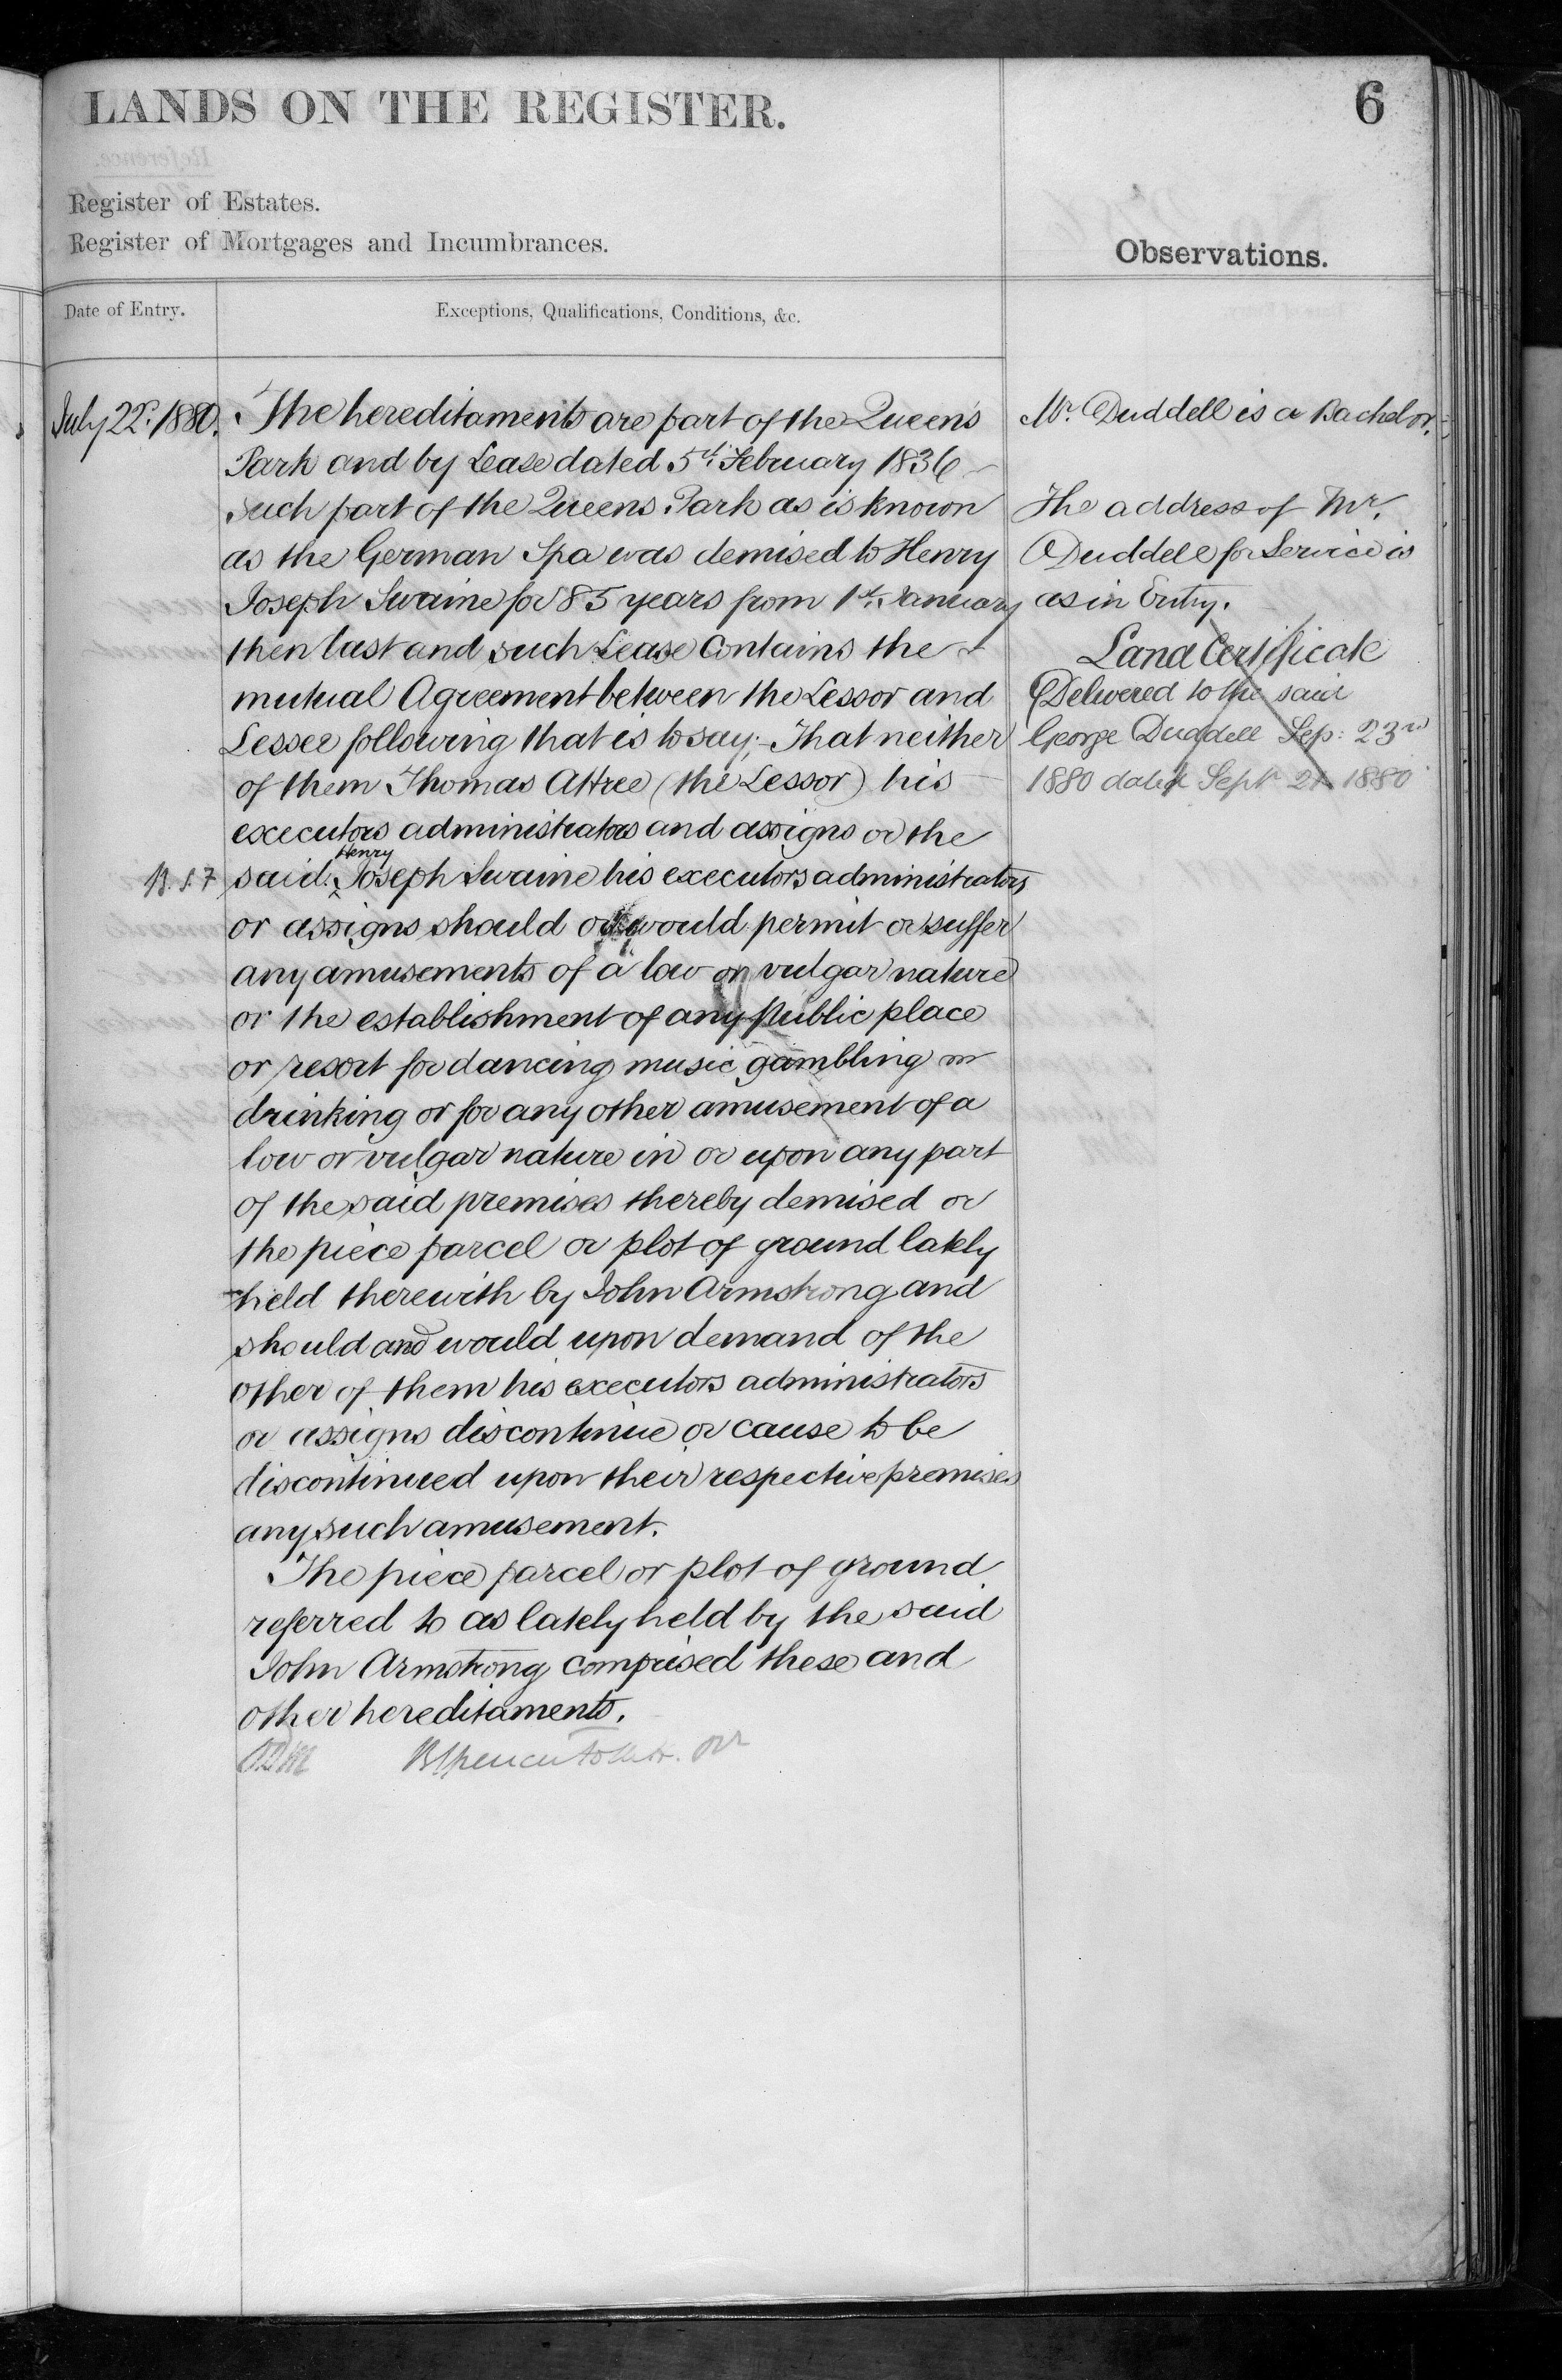 LANDS ON THE REGISTER.
6
Register of Estates.
Register of Mortgages and Incumbrances.
Observations.
Date of Entry.
Exceptions, Qualifications, Conditions, &c.
July 22d. 1880.
The hereditaments are part of the Queen's
Park and by Lease dated 5th February 1836
such part of the Queens Park as is known
as the German Spa was demised to Henry
Joseph Swaine for 85 years from 1st January
then last and such Lease contains the
mutual Agreement between the Lessor and
Lessee following that is to say;- That neither
of them Thomas Attree (the Lessor) his
executors administrators and assigns or the
Henry
said Joseph Swaine his executors administrators
or assigns should or would permit or suffer
any amusements of a low or vulgar nature
or the establishment of any public place
or resort for dancing music gambling or
drinking or for any other amusement of a
low or vulgar nature in or upon any part
of the said premises thereby demised or
the piece parcel or plot of ground lately
held therewith by John Armstrong and
should and would upon demand of the
other of them his executors administrators
or assigns discontinue or cause to be
discontinued upon their respective premises
any such amusement.
The piece parcel or plot of ground
referred to as lately held by the said
John Armstrong comprised these and
other hereditaments.
Mr. Duddell is a Bachelor.
The address of Mr.
Duddell for Service is
as in Entry.
Land Certificate
Delivered to the said
George Duddell Sep: 23rd
1880 dated Sept 21 1880